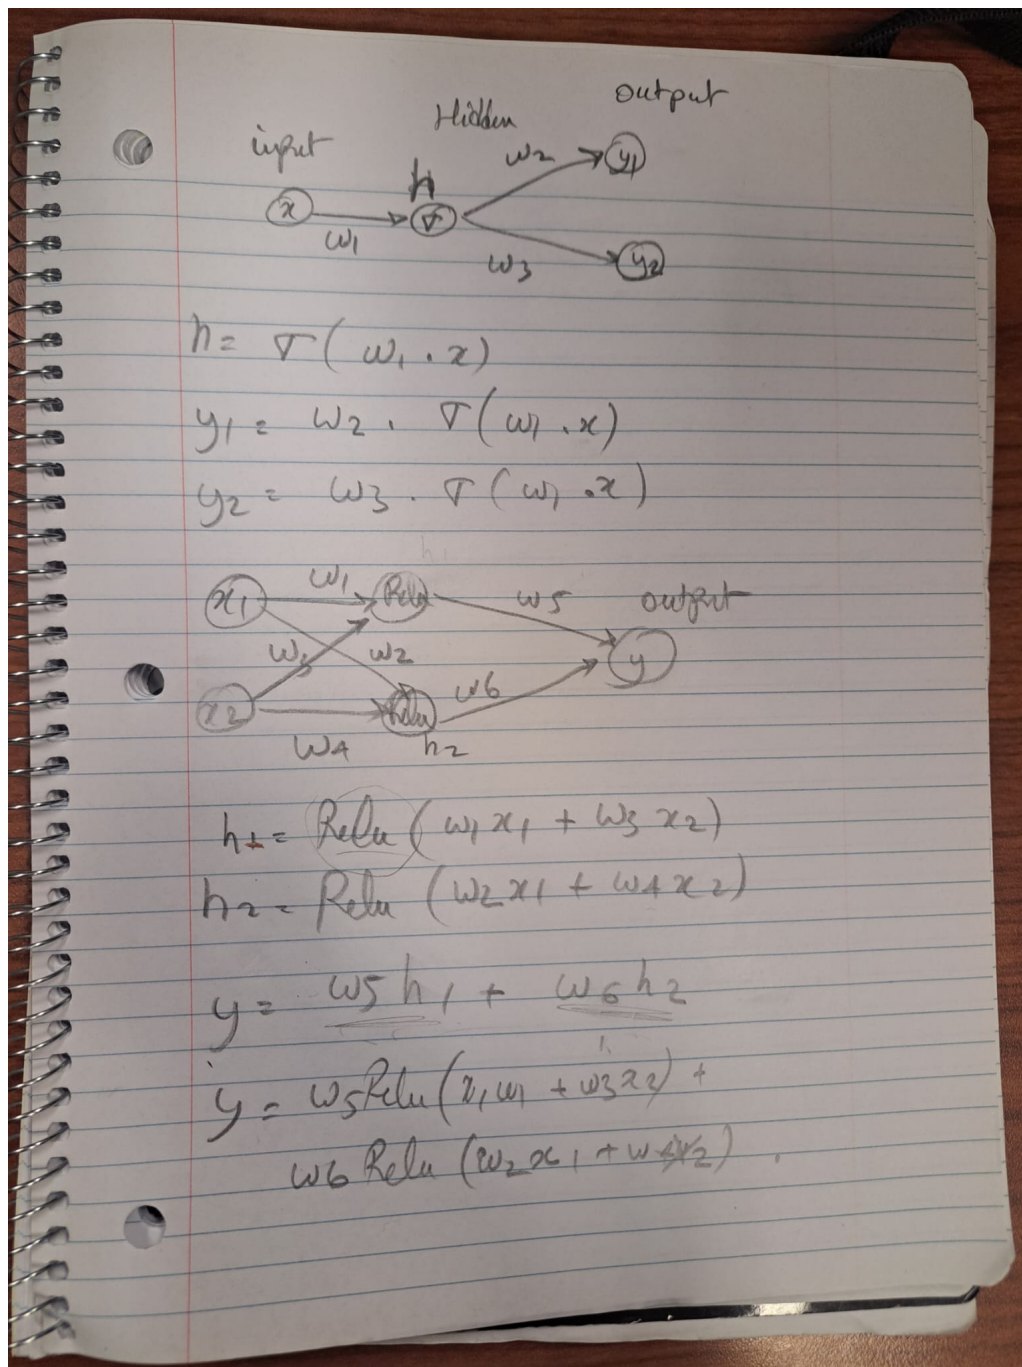 input Hidden output
h
x w1 σ w2 y1
w3 y2
h = σ ( w1 . x )
y1 = w2 . σ ( w1 . x )
y2 = w3 . σ ( w1 . x )
h1
x1 w1 Relu w5 output
w3 w2 y
x2 Relu w6
w4 h2
h1 = Relu ( w1 x1 + w3 x2 )
h2 = Relu ( w2 x1 + w4 x2 )
y = w5 h1 + w6 h2
y = w5 Relu ( x1 w1 + w3 x2 ) +
w6 Relu ( w2 x1 + w4 x2 ) .